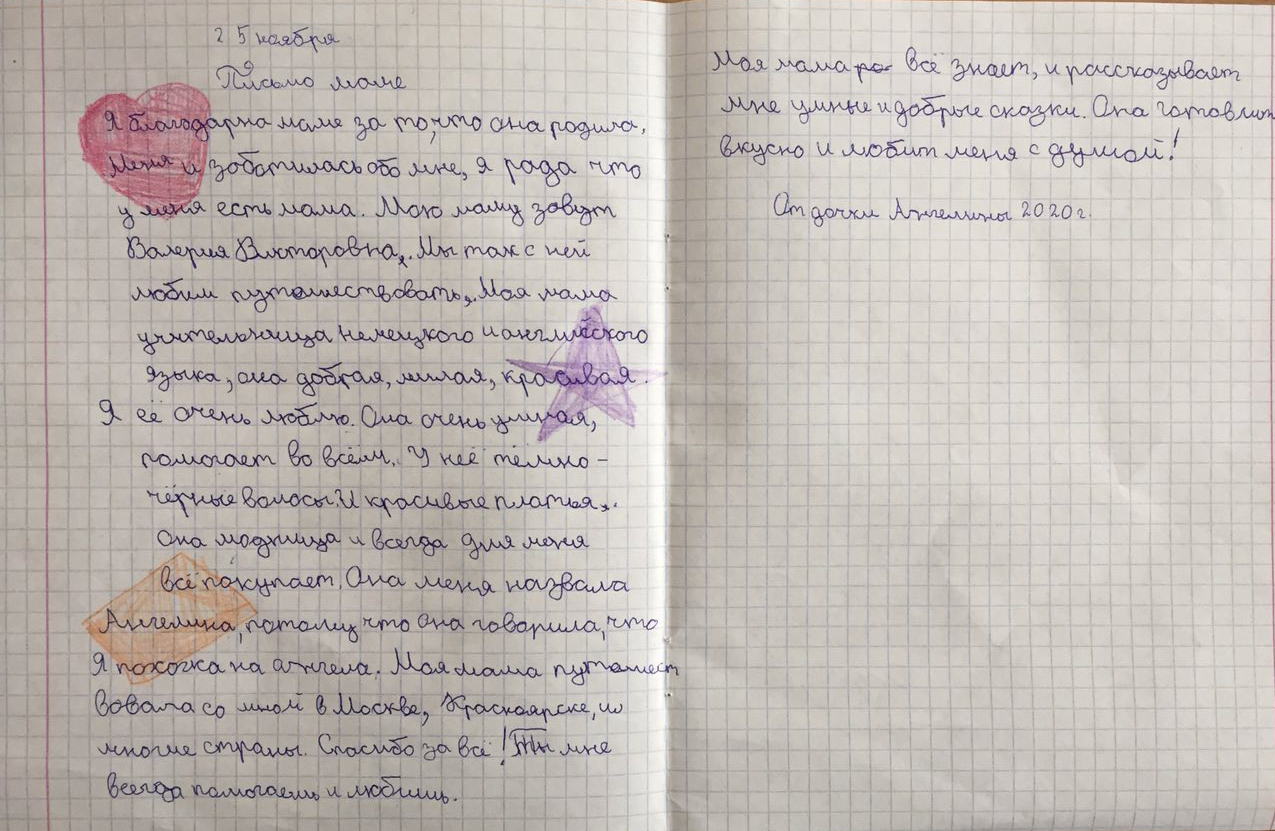 25 ноября
Письмо маме
Я благодарна маме за то, что она родила,
меня и зоботилась обо мне, я рада что
у меня есть мама. Мою маму зовут
Валерия Викторовна,. Мы так с ней
любим путешествовать,. Моя мама
учительница немецкого и английского
языка, она добрая, милая, красивая.
Я её очень люблю. Она очень умная,
помогает во всём,. У неё тёмно-
чёрные волосы. И красивые платья,.
Она модница и всегда для меня
всё покупает. Она меня назвала
Ангелина, потому что она говорила, что
Я похожка на ангела. Моя мама путешест
вовала со мной в Москве, Красноярске, и
многие страны. Спасибо за всё! Ты мне
всегда помогаешь и любишь.
Моя мама всё знает, и рассказывает
мне умные и добрые сказки. Она готовит
вкусно и любит меня с душой!
От дочки Ангелины 2020г.